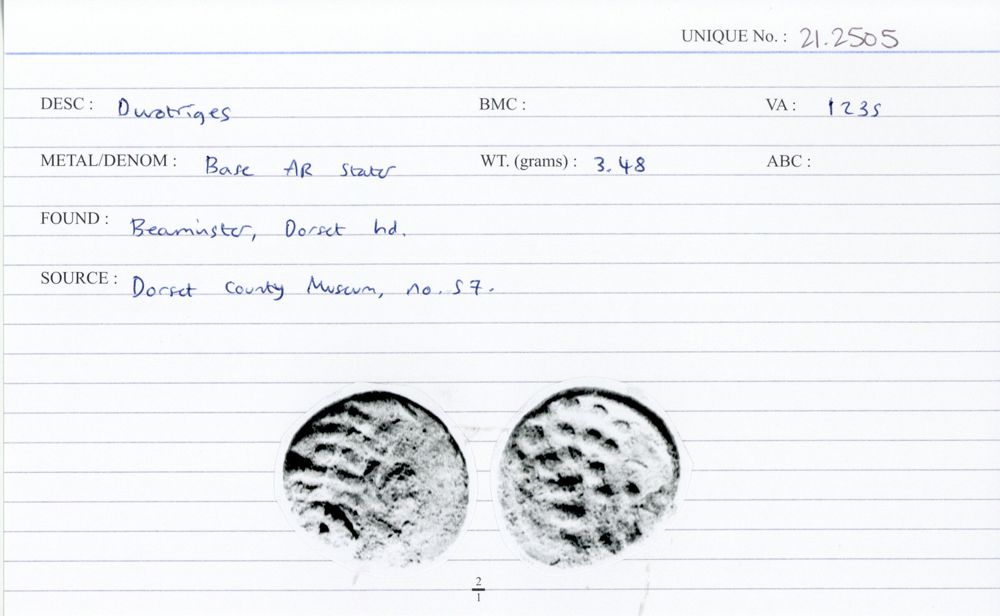 UNIQUE No. : 21.2505
DESC : Durotriges BMC : VA : 1235
METAL/DENOM : Base AR stater WT. (grams) : 3.48 ABC :
FOUND : Beaminster, Dorset hd.
SOURCE : Dorset County Museum, no. 57.
2
1